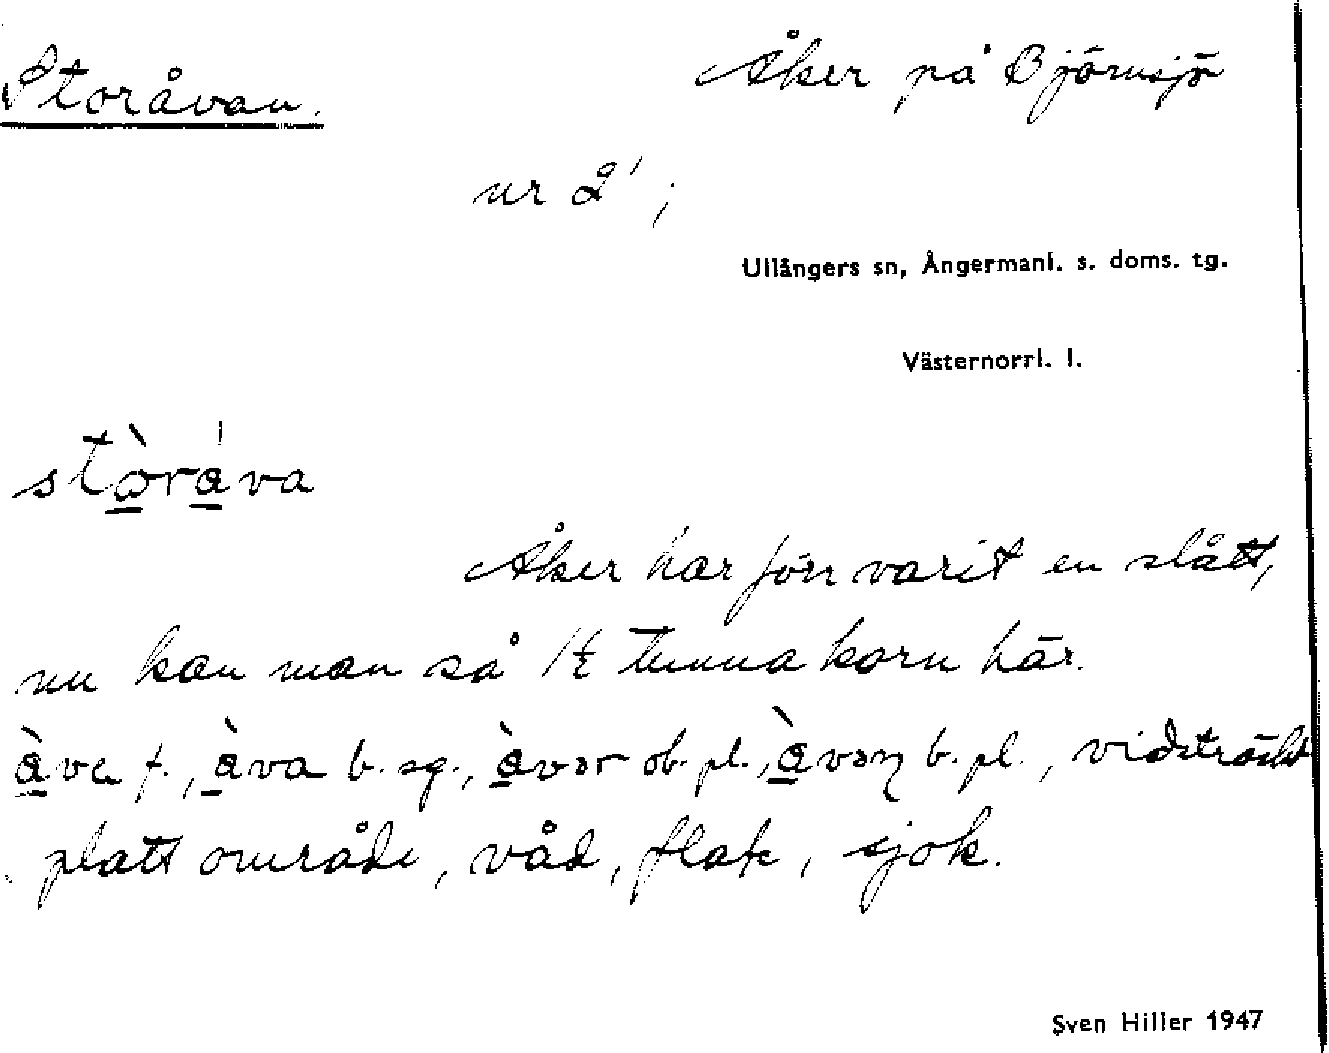 Storåvan.
Åker på Björnsjö
nr 2¹;
Ullångers sn, Ångermanl. s. doms. tg.
Västernorrl. l.
stòráva
Åker har förr varit en slått,
nu kan man så 1½ tunna korn här.
àva f., àva b. sg., àvər ob. pl., àvəɳ b. pl., vidsträckt
platt område, våd, flak, sjok.
Sven Hiller 1947